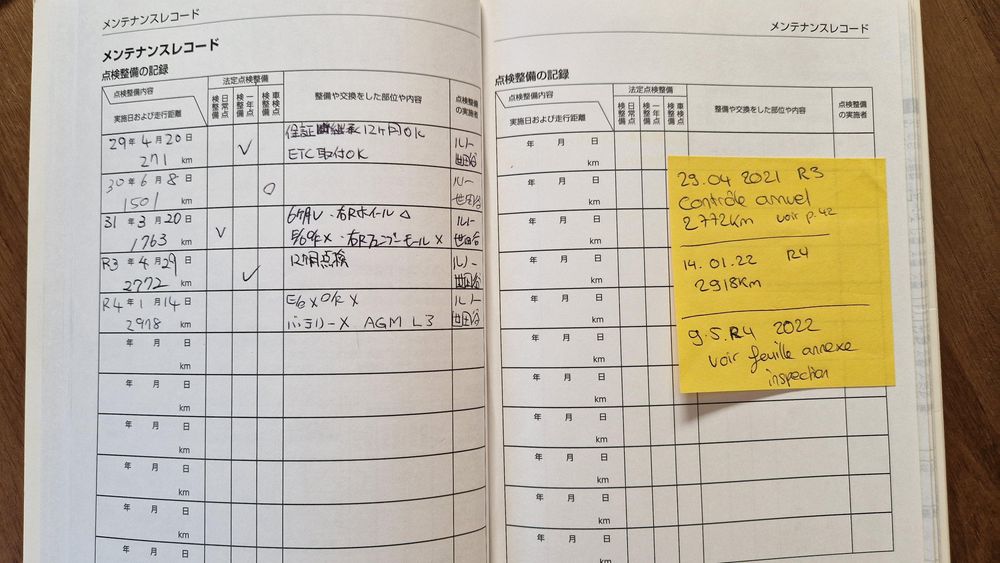 メンテナンスレコード
メンテナンスレコード
点検整備の記録
点検整備内容
実施日および走行距離
法定点検整備
日常点検整備
一年点検整備
車検点検整備
整備や交換をした部位や内容
点検整備の実施者
29年4月20日
271 km
保証継承 12ヶ月OK
ETC取付OK
ルノー
世田谷
30年6月8日
1501 km
ルノー
世田谷
31年3月20日
1763 km
6ヶ月レ・右Rホイール△
E/O交×・右Rフェンダーモール×
ルノー
世田谷
R3年4月29日
2772 km
12ヶ月点検
ルノー
世田谷
R4年1月14日
2918 km
E/o× O/F×
バッテリー× AGM L3
ルノー
世田谷
年 月 日
km
年 月 日
km
年 月 日
km
年 月 日
km
年 月 日
km
年 月 日
メンテナンスレコード
点検整備の記録
点検整備内容
実施日および走行距離
法定点検整備
日常点検整備
一年点検整備
車検点検整備
整備や交換をした部位や内容
点検整備の実施者
年 月 日
km
年 月 日
km
年 月 日
km
年 月 日
km
年 月 日
km
年 月 日
km
年 月 日
km
年 月 日
km
年 月 日
km
年 月 日
km
年 月 日
29.04 2021 R3
contrôle annuel
2772Km voir p.42
14.01.22 R4
2918Km
9.5.R4 2022
voir feuille annexe
inspection